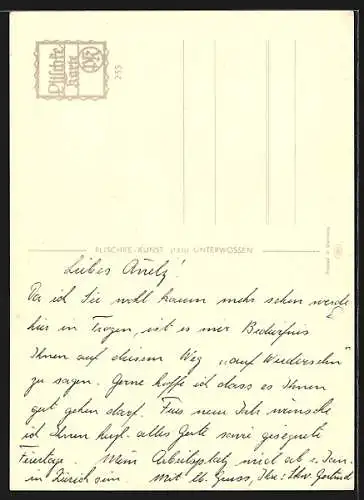 Plischke
Karte
PK
255
PLISCHKE-KUNST UNTERWÖSSEN
Printed in Germany
Liebes Änetz!
Da ich Sie wohl kaum mehr sehen werde
hier in Trogen, ist es mir Bedürfnis
Ihnen auf diesem Weg "auf Wiedersehn"
zu sagen. Gerne hoffe ich dass es Ihnen
gut gehen darf. Fürs neue Jahr wünsche
ich Ihnen herzl. alles Gute sowie gesegnete
Feiertage. Mein Arbeitsplatz wird ab 1. Jan.
in Zürich sein. Mit lb. Gruss, Ihre: Schw. Gertrud